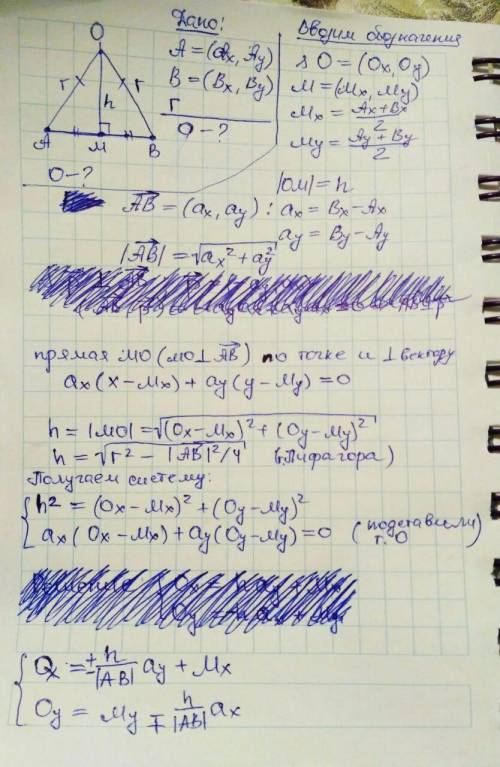 Дано:
A = (Ax, Ay)
B = (Bx, By)
r
O - ?
Вводим обозначения
O = (Ox, Oy)
M = (Mx, My)
Mx = Ax + Bx / 2
My = Ay + By / 2
O
r
r
h
A
M
B
O - ?
|OM| = h
AB = (ax, ay) : ax = Bx - Ax
ay = By - Ay
|AB| = √ax² + ay²
прямая MO (MO ⊥ AB) по точке и ⊥ вектору
ax (x - Mx) + ay (y - My) = 0
h = |MO| = √(Ox - Mx)² + (Oy - My)²
h = √r² - |AB|²/4 (т. Пифагора)
Получаем систему:
h² = (Ox - Mx)² + (Oy - My)²
ax (Ox - Mx) + ay (Oy - My) = 0 (подставили т. O)
Ox = ± h/|AB| ay + Mx
Oy = My ∓ h/|AB| ax